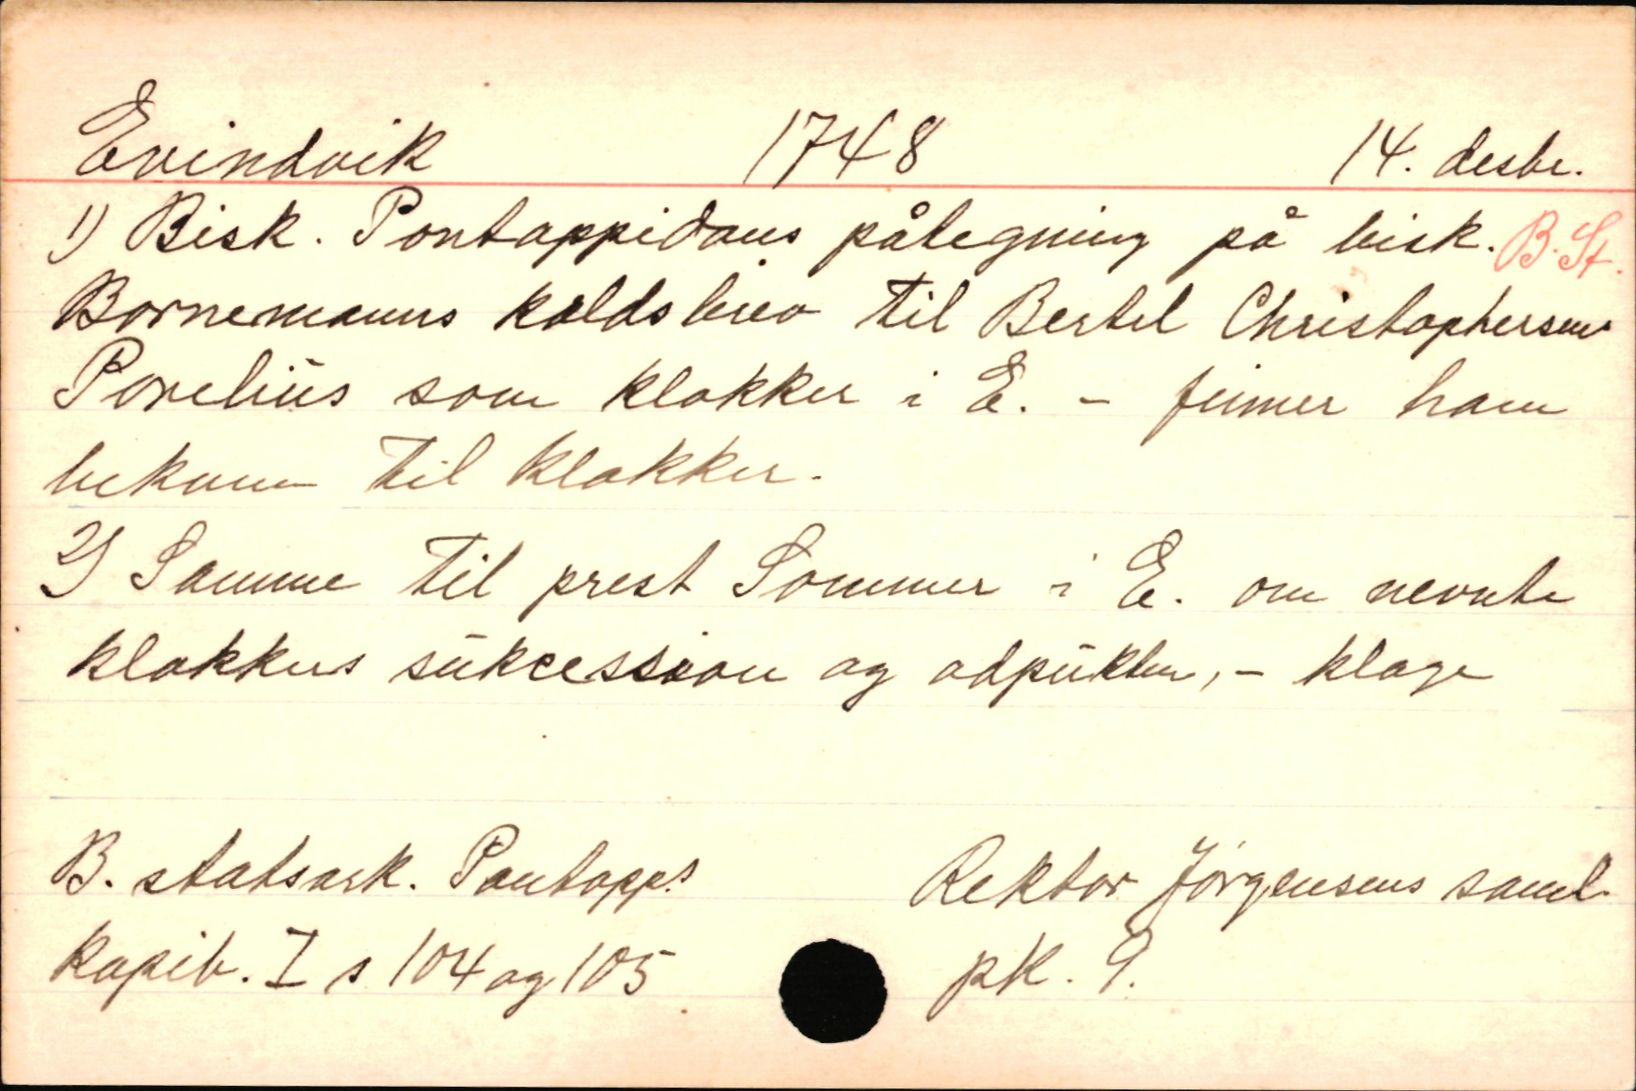 Evindvik 1748 14. desbr.
1) Bisk. Pontoppidans pålegning på bisk. B. St.
Bornemanns kaldsbrev til Bertel Christophersen
Porelius som klokker i E. - finner ham
bekvem til klokker.
2) Samme til prest Sommer i E. om nevnte
klokkers sukcession og adpukter, - klage
B. statsark. Pontopp.s Rektor Jørgensens saml.
kopib. I s 104 og 105 pk. 9.